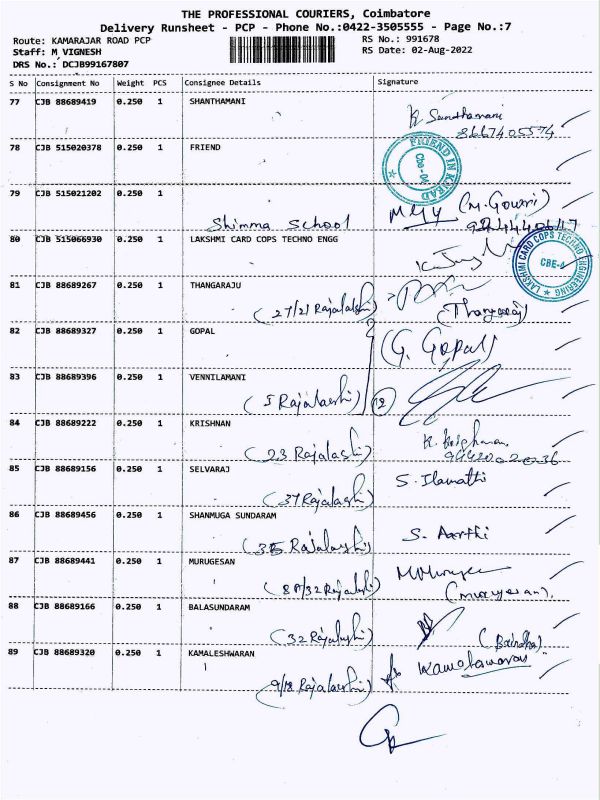 THE PROFESSIONAL COURIERS, Coimbatore
Delivery Runsheet - PCP - Phone No.:0422-3505555 - Page No.:7
Route: KAMARAJAR ROAD PCP
RS No.: 991678
Staff: M VIGNESH
RS Date: 02-Aug-2022
DRS No.: DCJB99167807
S No Consignment No Weight PCS Consignee Details Signature
77 CJB 88689419 0.250 1 SHANTHAMANI
K Santhamani
8667405574
78 CJB 515020378 0.250 1 FRIEND
FRIEND IN KNEAD
79 CJB 515021202 0.250 1
Shimma School
(M. Gowri)
80 CJB 515066930 0.250 1 LAKSHMI CARD COPS TECHNO ENGG
LAKSHMI CARD COPS TECHNO ENGINEERING
CBE-4
81 CJB 88689267 0.250 1 THANGARAJU
(27/21 Rajalakshi)
(Thangaraj)
82 CJB 88689327 0.250 1 GOPAL
(G. Gopal)
83 CJB 88689396 0.250 1 VENNILAMANI
(5 Rajalashi)
12
84 CJB 88689222 0.250 1 KRISHNAN
(23 Rajalashi)
K. Krishnan
85 CJB 88689156 0.250 1 SELVARAJ
(37 Rajalashi)
S. Ilamathi
86 CJB 88689456 0.250 1 SHANMUGA SUNDARAM
(35 Rajalashi)
S. Aarthi
87 CJB 88689441 0.250 1 MURUGESAN
(8A/32 Rajalashi)
(murugesan).
88 CJB 88689166 0.250 1 BALASUNDARAM
(32 Rajalashi)
89 CJB 88689320 0.250 1 KAMALESHWARAN
(9/18 Rajalashi)